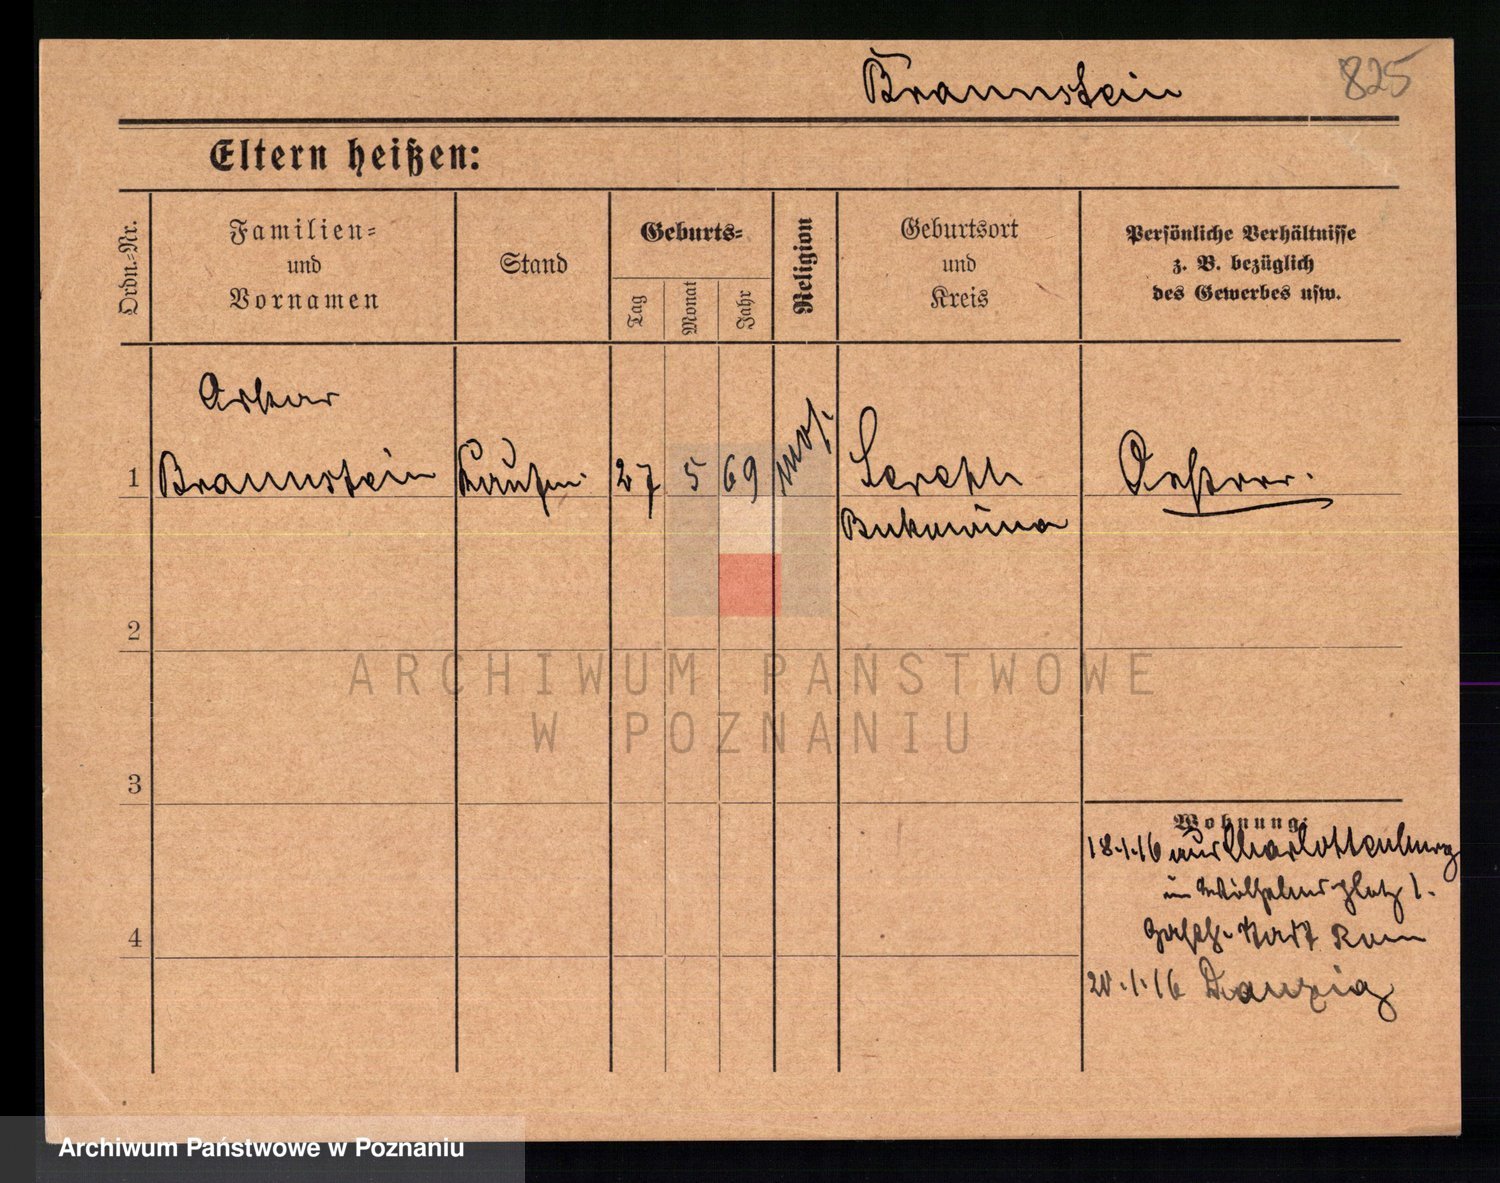 Braunstein 825
Eltern heißen:
Ordn.-Nr.
Familien-
und
Vornamen
Stand
Geburts-
Tag
Monat
Jahr
Religion
Geburtsort
und
Kreis
Persönliche Verhältnisse
z. B. bezüglich
des Gewerbes usw.
Oskar
1 Braunstein Kaufm. 27 5 69 mos. Sereth Oesterr.
Bukowina
2
ARCHIWUM PAŃSTWOWE
W POZNANIU
3
Wohnung:
18.1.16 aus Charlottenburg
in Wilhelmsplatz 1.
4
Stadt Rom
20.1.16 Danzig
Archiwum Państwowe w Poznaniu